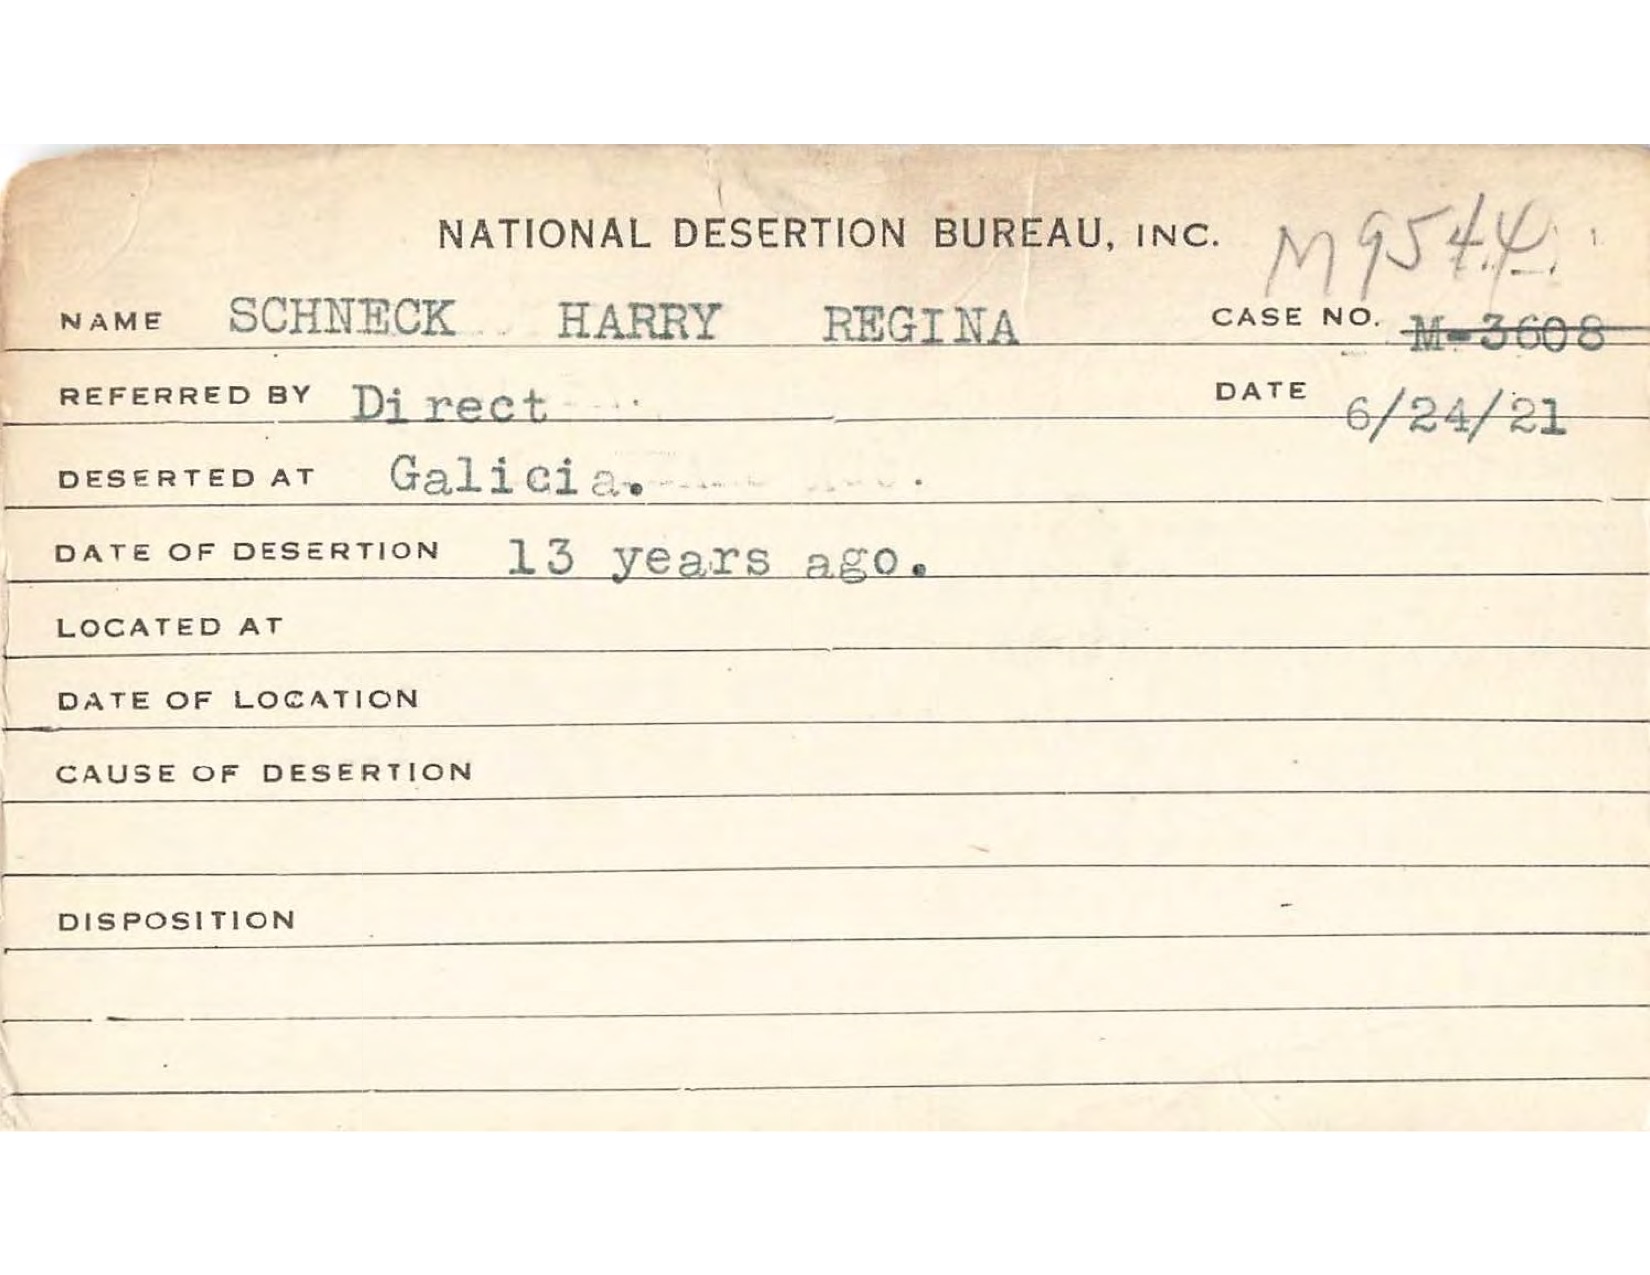 NATIONAL DESERTION BUREAU, INC. M9544
NAME SCHNECK HARRY REGINA CASE NO. M-3608
REFERRED BY Direct DATE 6/24/21
DESERTED AT Galicia.
DATE OF DESERTION 13 years ago.
LOCATED AT
DATE OF LOCATION
CAUSE OF DESERTION
DISPOSITION